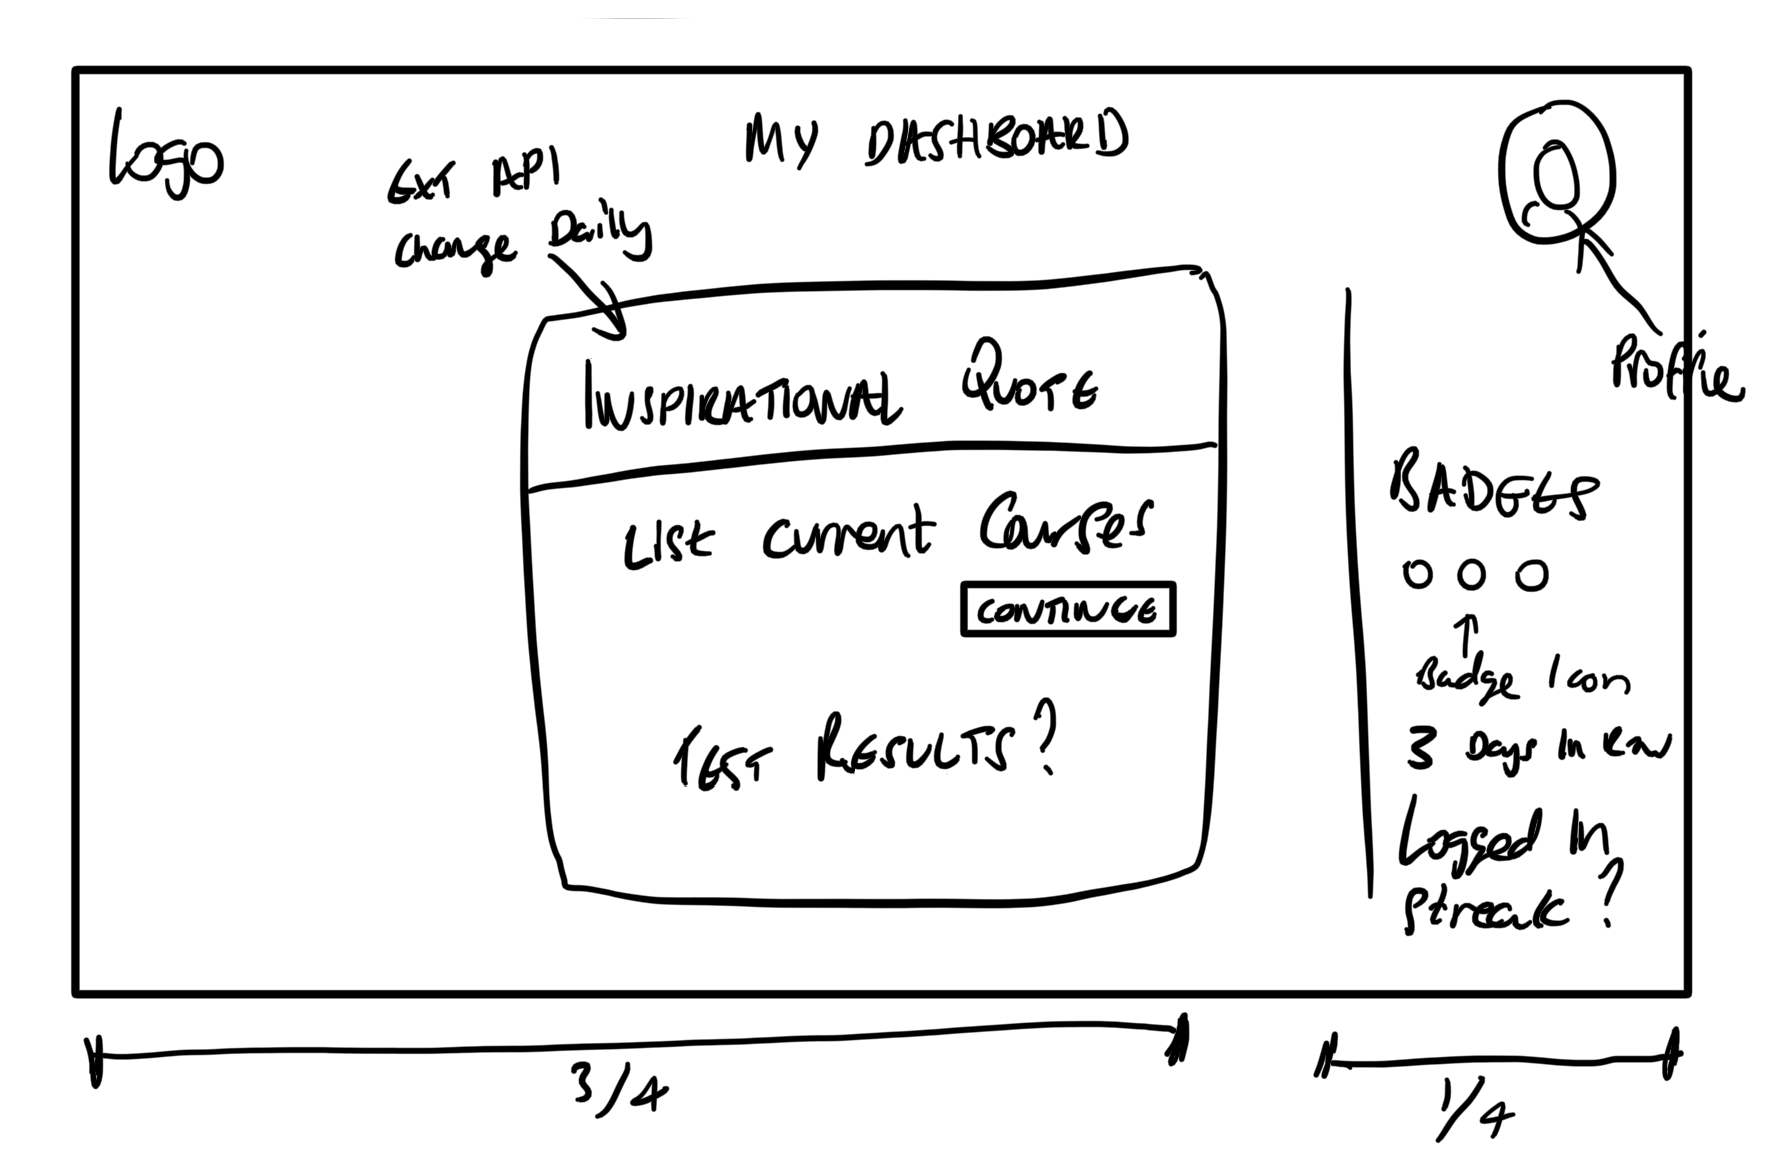 Logo
MY DASHBOARD
Ext API
Change Daily
INSPIRATIONAL QUOTE
Profile
List Current Courses
CONTINUE
TEST RESULTS?
BADGES
Badge Icon
3 Days In Row
Logged In
Streak?
3/4
1/4